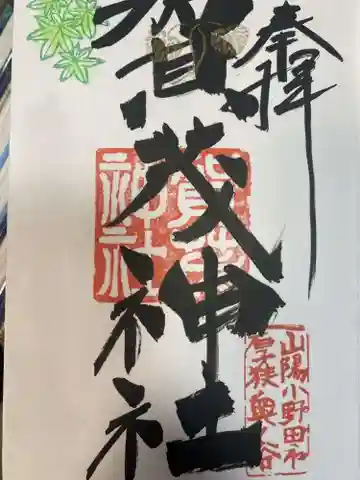 奉拝
賀茂神社
賀茂
神社
山陽小野田市
厚狭奥ノ谷